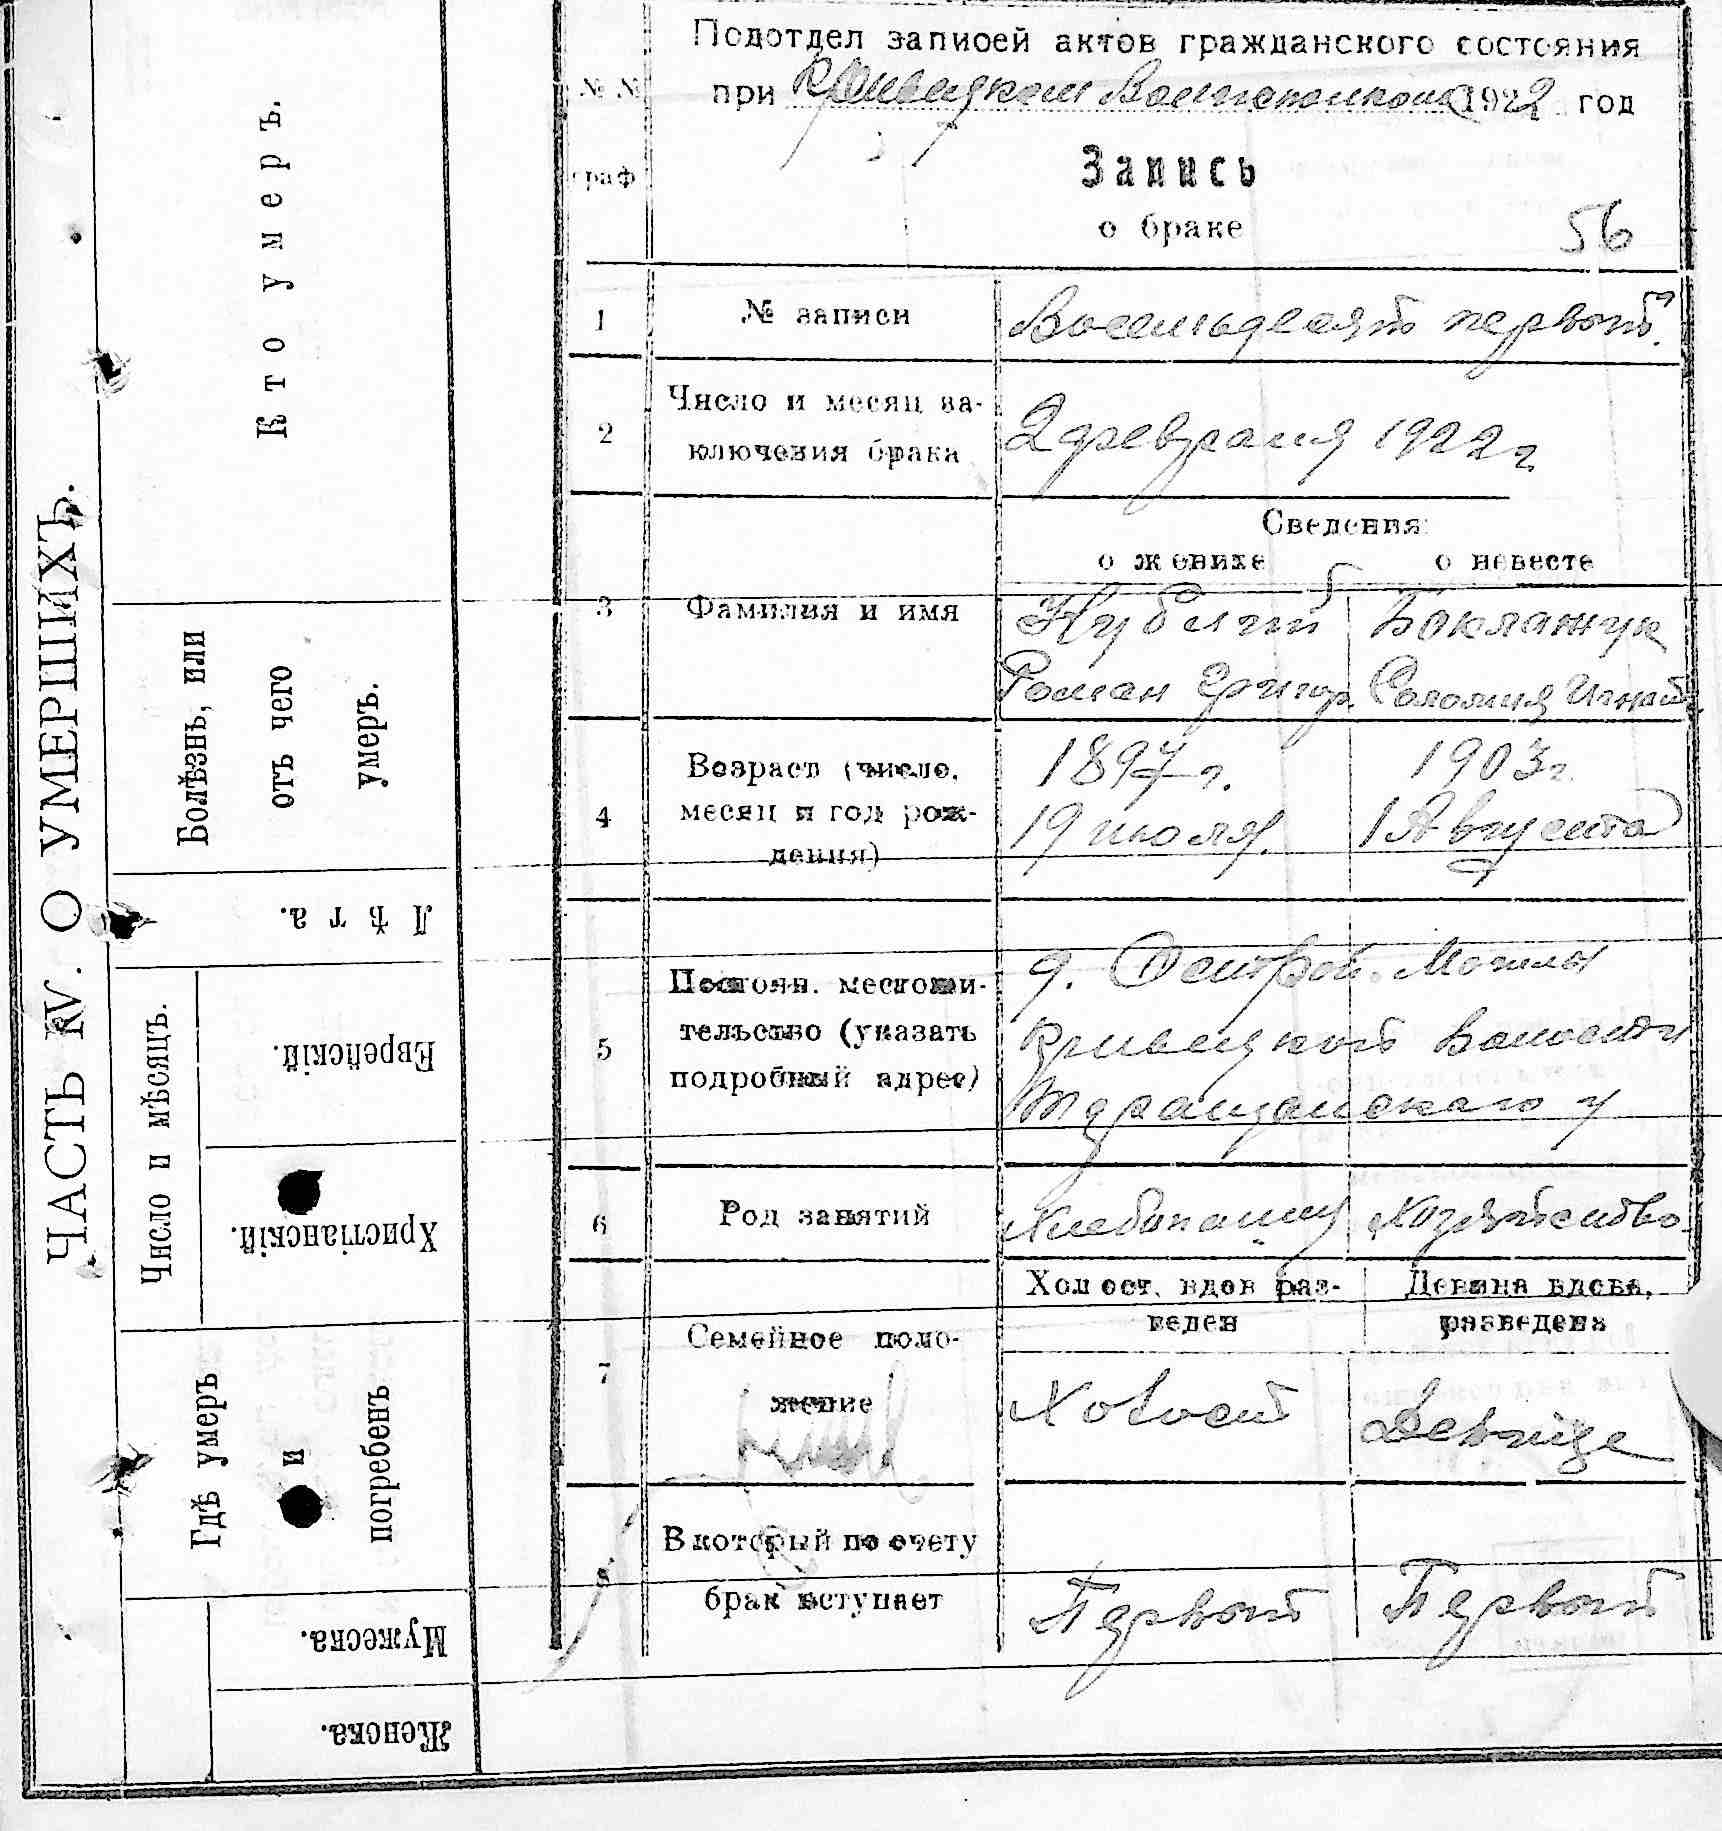 Подотдел записей актов гражданского состояния
при Кривецком Волисполкоме 1922 год
№ №
граф
Запись
о браке
56
1 № записи Восемьдесят первый.
2 Число и месяц за-
ключения брака
2 февраля 1922 г
Сведения
о женихе о невесте
3 Фамилия и имя
Кубляй Боклажук
Роман Григор. Соломия Игнат.
4 Возраст (число,
месяц и год рож-
дения)
1897 г. 1903 г.
19 июля. 1 Августа
5 Постоян. местожи-
тельство (указать
подробный адрес)
д. Острой Могилы
Кривецкой Волости
Таращанскаго у
6 Род занятий Хлебопашец Хозяйство
7 Семейное поло-
жение
Холост. вдов раз-
веден
Девица вдова,
разведена
Холост Девице
8 В который по счету
брак вступает
Первый Первый
ЧАСТЬ IV. О УМЕРШИХЪ.
Кто умеръ.
Болѣзнь, или
отъ чего
умеръ.
Лѣта.
Число и мѣсяцъ.
Еврейскій.
Христіанскій.
Гдѣ умеръ
и
погребенъ
Мужеска.
Женска.